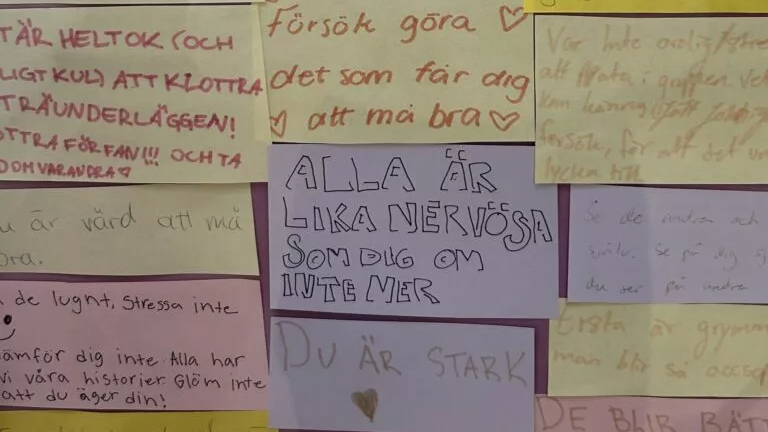 T ÄR HELT OK (OCH
LIGT KUL) ATT KLOTTRA
TRÄUNDERLÄGGEN!
OTTRA FÖR FAN!!! OCH TA
DOM VARANDRA♡
Försök göra ♡
det som får dig
♡ att må bra ♡
Var inte orolig/stre
att prata i gruppen. Vet
kan kännas
försök, för att det
lycka till
ALLA ÄR
LIKA NERVÖSA
SOM DIG OM
INTE MER
u är värd att må
bra.
Se de andra och
själv. Se på dig sj
du ser på andra
de lugnt, stressa inte
ämför dig inte. Alla har
vi våra historier. Glöm inte
att du äger din!
DU ÄR STARK
Ersta är grymm
man blir så accep
DE BLIR BÄTT